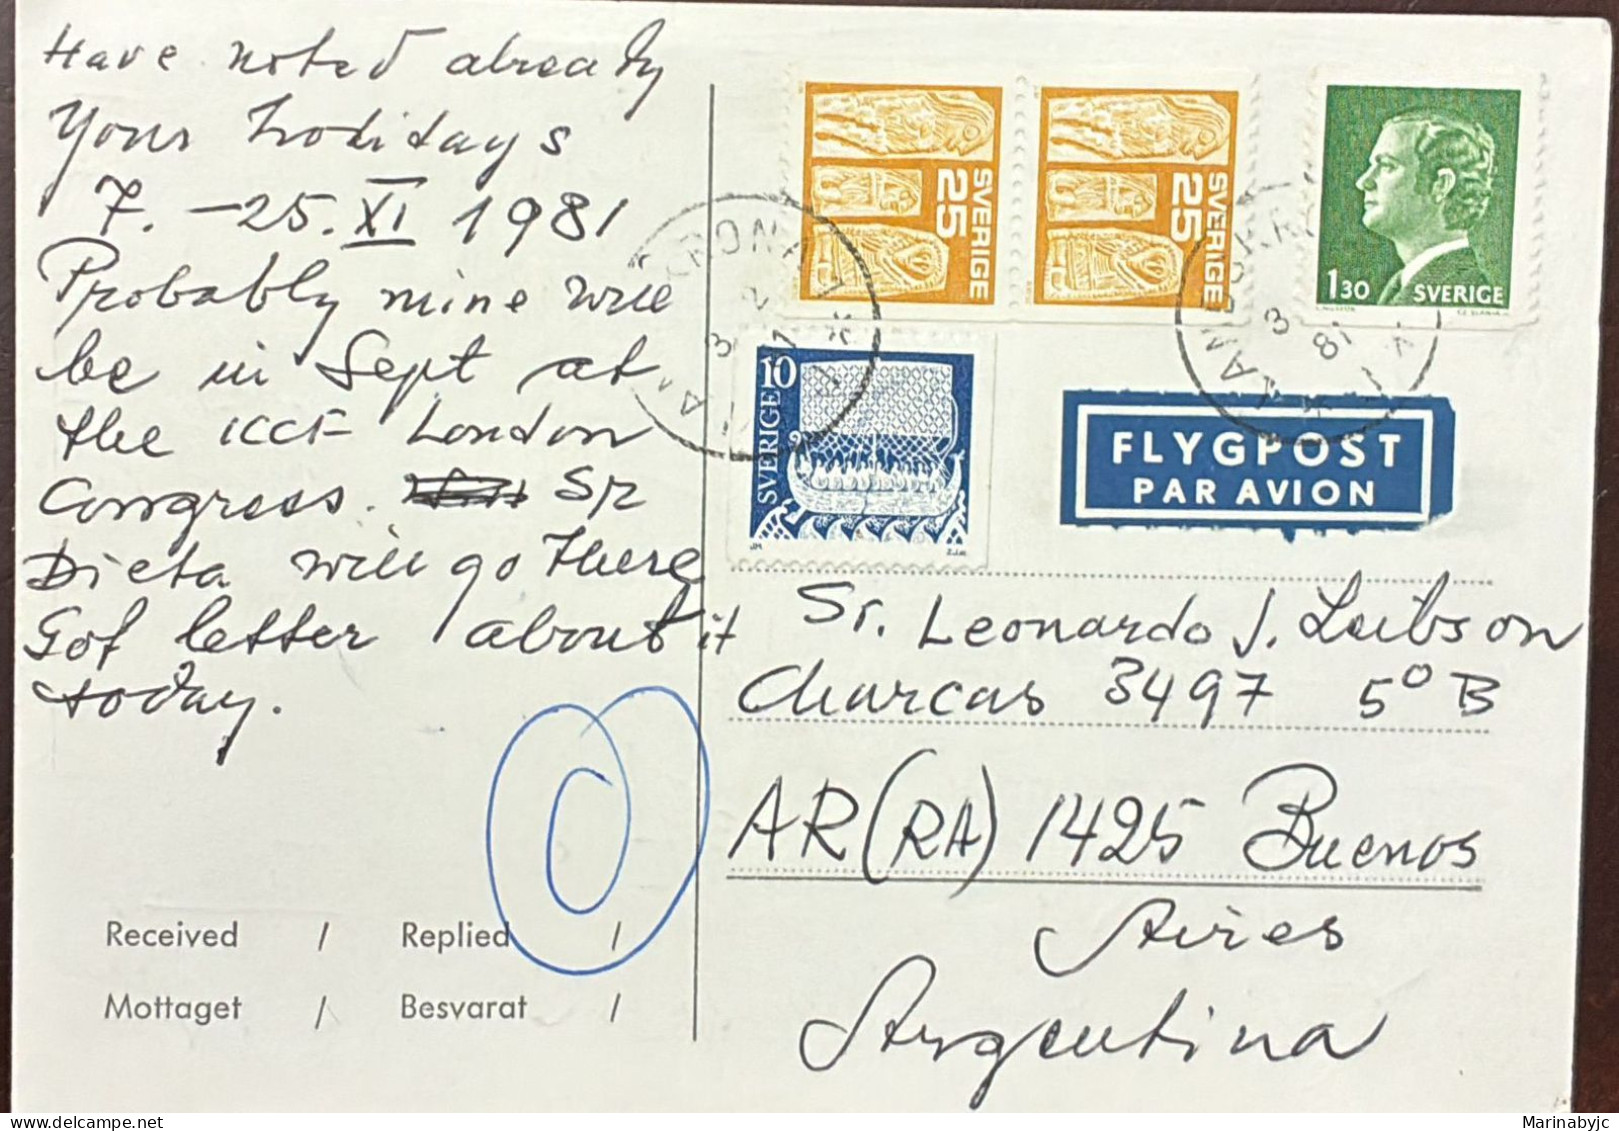 Have noted already
Your holidays
7. -25. XI 1981
Probably mine will
be in Sept at
the ICCF London
Congress. Sr
Dieta will go there
Got letter about it
today.
Received / Replied /
Mottaget / Besvarat /
SVERIGE 25
SVERIGE 25
1 30 SVERIGE
10 SVERIGE
JM ZJA
LANDSKRONA
3 2
LANDSKRONA
3
81
FLYGPOST
PAR AVION
Sr. Leonardo J. Leibson
Charcas 3497 5º B
AR (RA) 1425 Buenos
Aires
Argentina
Marinabyjc